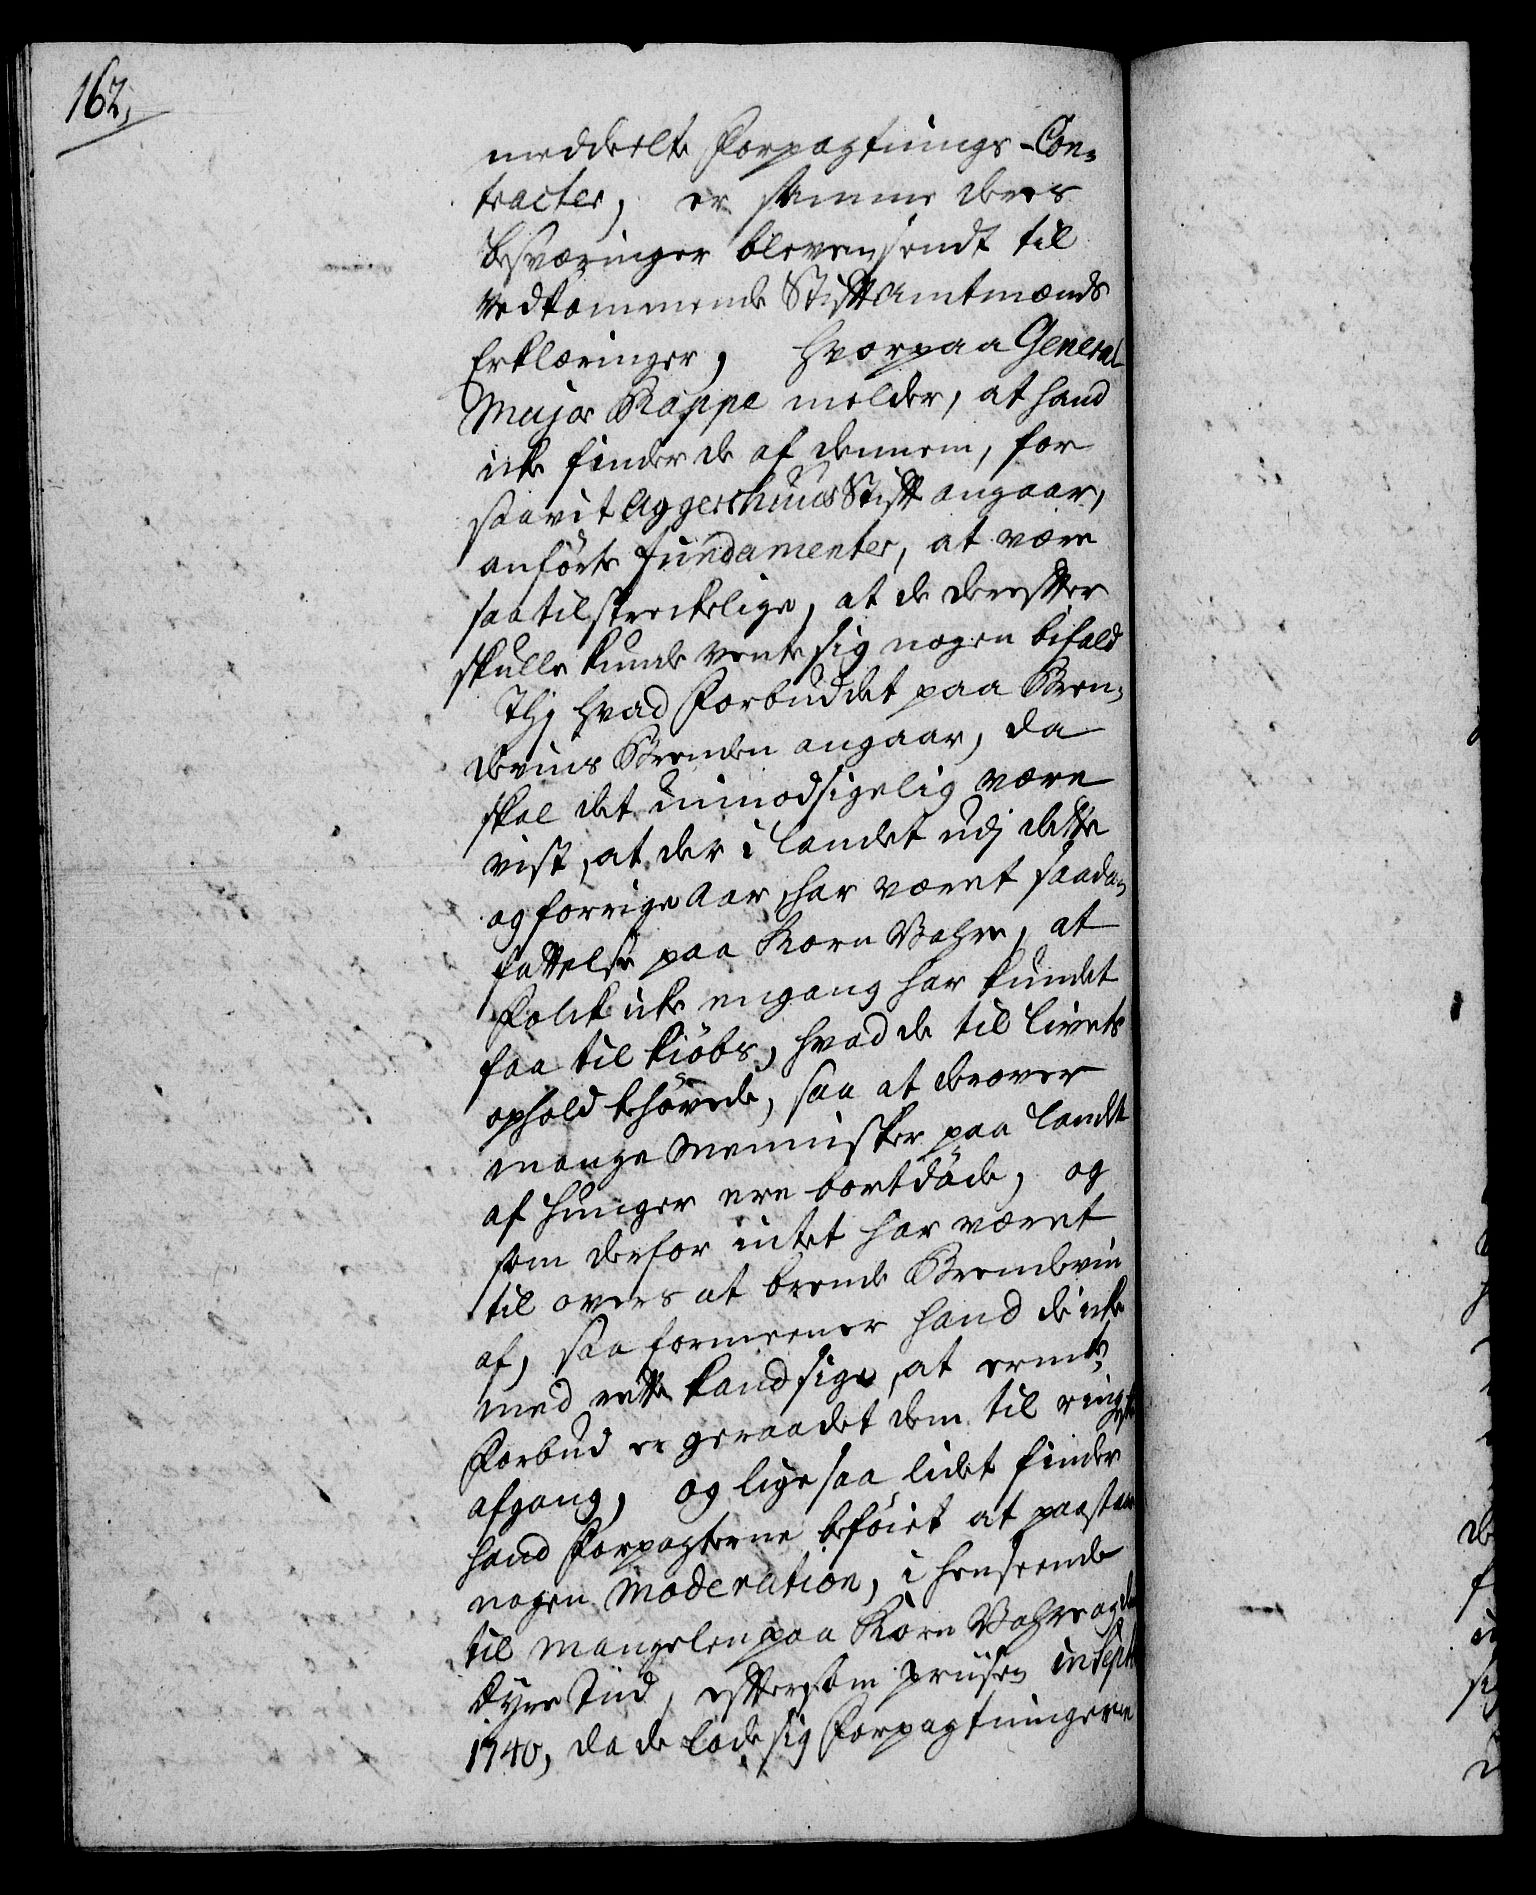 162,
meddeelte Forpagtnings-Con-
tracter, er samme deres
besværinger bleven sendt til
vedkommende Stiftamtmænds
Erklæringer, hvorpaa General
Major Rappe melder, at hand
icke finder de af dennem, for
saavit Aggershuus Stift angaar,
anförte fundamenter, at være
saa tilstreckelige, at de derefter
skulle kunde vente sig nogen bifald
Thj hvad Forbuddet paa Bren-
deviins Brenden angaar, da
skal det uimodsigelig være
vist, at der i landet udj dette
og forrige Aar, har været saadan
fattelse paa Korn Vahre, at
Folk icke engang har kundet
faa til kiöbs, hvad de til livets
ophold behövede, saa at derover
mange Mennisker paa landet
af hunger ere bortdöde, og
som derfor intet har været
til overs at brende Brendeviin
af, saa formeener hand de icke
med rette kand sige, at ermte
Forbud er geraadet dem til ringeste
afgang, og lige saa lidet finder
hand Forpagterne beföiet at paastaae
nogen Moderation, i henseende
til Mangelen paa Korn Vahre og den
dyre Tiid, eftersom priisen in Sept:
1740, da de lode sig Forpagtningerne